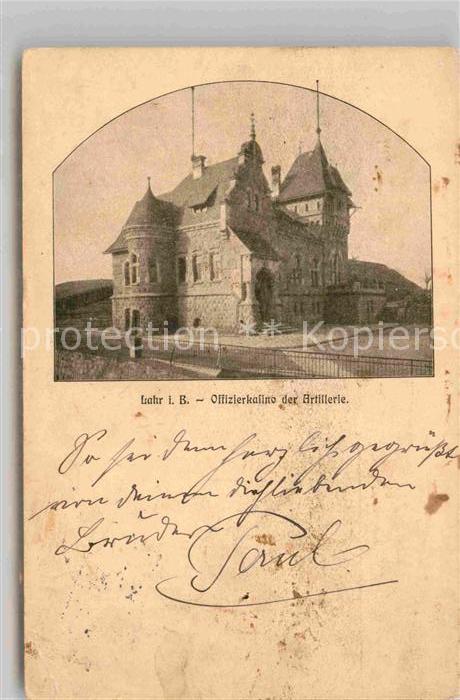 Lahr i. B. – Offizierkasino der Artillerie.
protection ** Kopierschutz
So sei denn herzlich gegrüßt
von deinem dichliebenden
Bruder Paul